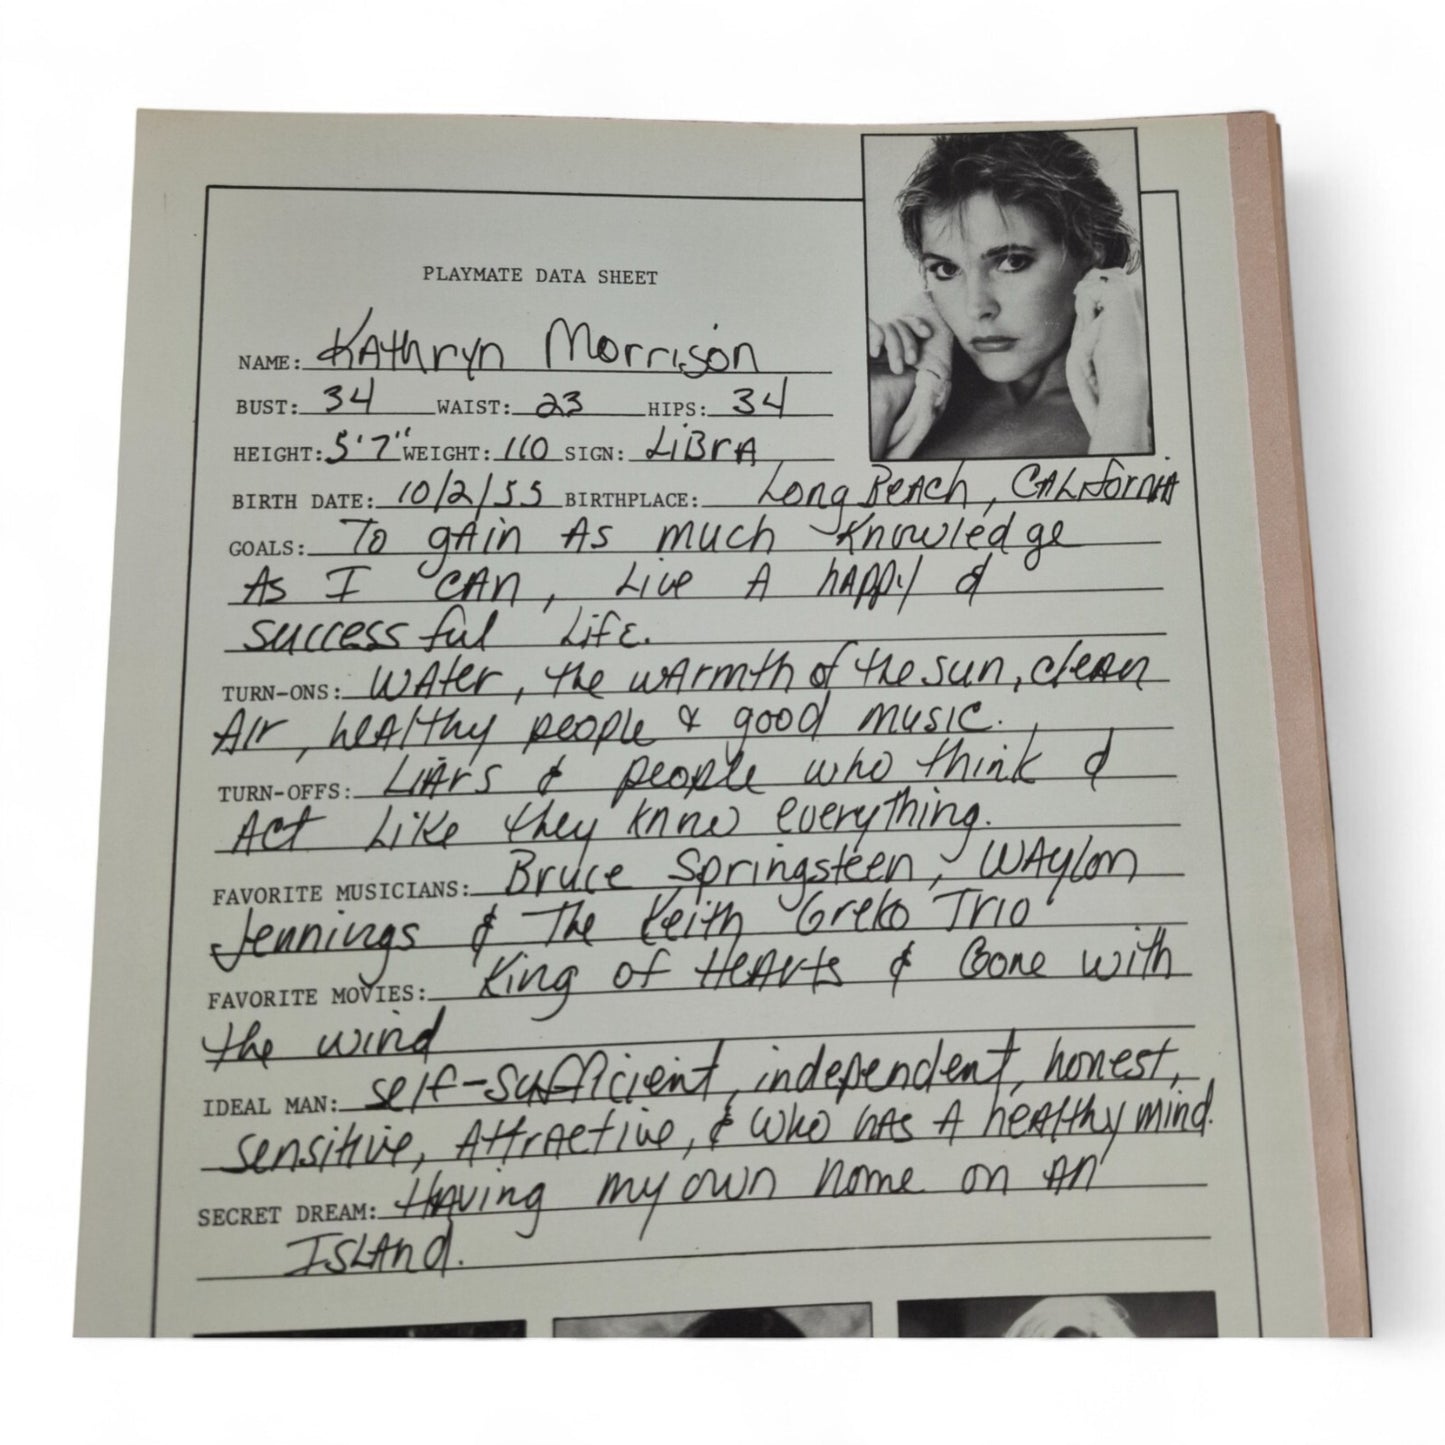 PLAYMATE DATA SHEET
NAME: Kathryn Morrison
BUST: 34 WAIST: 23 HIPS: 34
HEIGHT: 5'7" WEIGHT: 110 SIGN: LiBrA
BIRTH DATE: 10/2/55 BIRTHPLACE: Long BeAch, CALiforniA
GOALS: To gAin As much Knowledge
As I cAn, Live A hAppy &
successful Life.
TURN-ONS: WAter, the wArmth of the sun, cleAn
Air, heAlthy people & good music.
TURN-OFFS: LiArs & people who think &
Act Like they know everything.
FAVORITE MUSICIANS: Bruce Springsteen, WAylon
Jennings & The Keith Greko Trio
FAVORITE MOVIES: King of HeArts & Gone with
the wind
IDEAL MAN: self-sufficient, independent, honest,
sensitive, AttrActive, & who hAs A heAlthy mind.
SECRET DREAM: HAving my own home on An
ISLAnd.